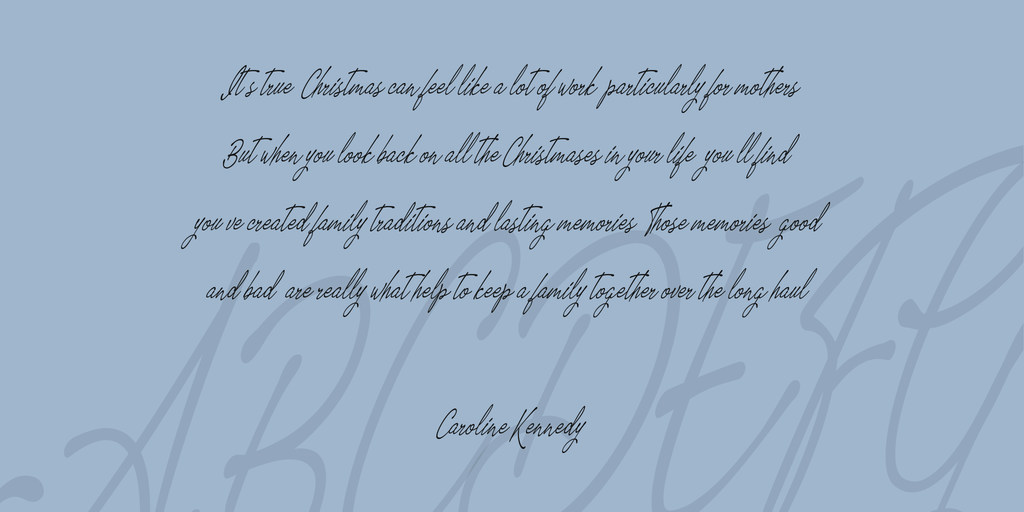 It s true Christmas can feel like a lot of work particularly for mothers
But when you look back on all the Christmases in your life you ll find
you ve created family traditions and lasting memories Those memories good
and bad are really what help to keep a family together over the long haul
Caroline Kennedy
ABCDEFG